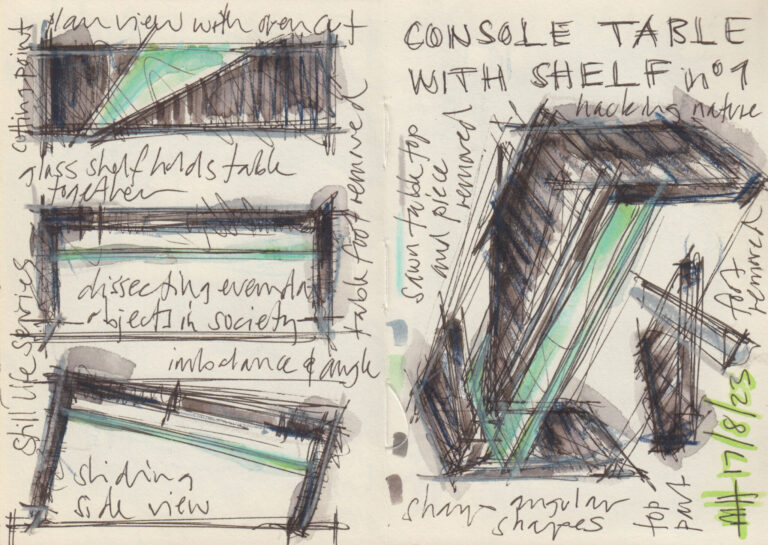 plan view with oven cut
cutting point
glass shelf holds table
together
table foot removed
dissecting everyday
objects in society
Still life series
imbalance & angle
sliding
side view
CONSOLE TABLE
WITH SHELF nº1
hacking nature
sawn table top
and piece
removed
foot
removed
sharp angular
shapes
top
part
MH 17/8/23